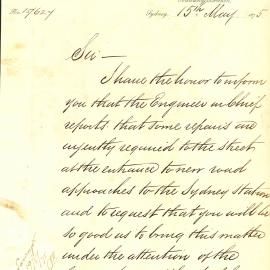 Sydney, 15th May 1875
Sir —
I have the honor to inform
you that the Engineer in Chief
reports that some repairs are
urgently required to the street
at the entrance to new road
approaches to the Sydney Station
and to request that you will be
so good as to bring this matter
under the attention of the